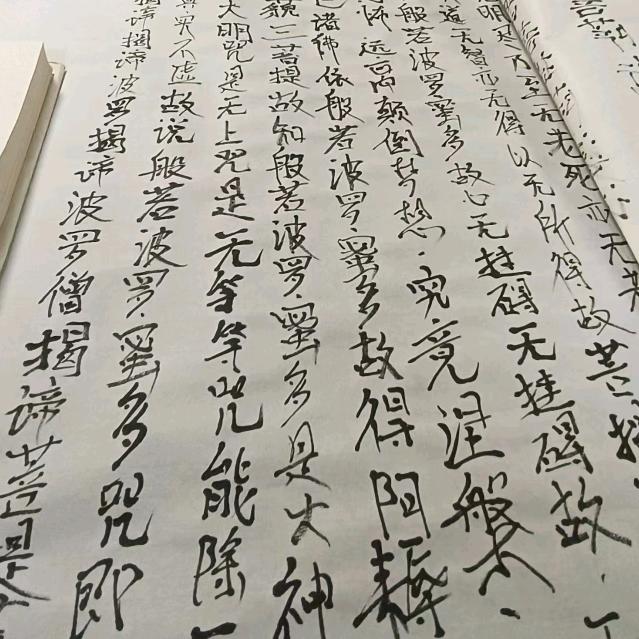 明尽乃至无老死亦无老
道无智亦无得以无所得故菩提
般若波罗蜜多故心无挂碍无挂碍故
怖远离颠倒梦想究竟涅槃
诸佛依般若波罗蜜多故得阿耨
藐三菩提故知般若波罗蜜多是大神
大明咒是无上咒是无等等咒能除一
实不虚故说般若波罗蜜多咒即
揭谛揭谛波罗揭谛波罗僧揭谛菩提